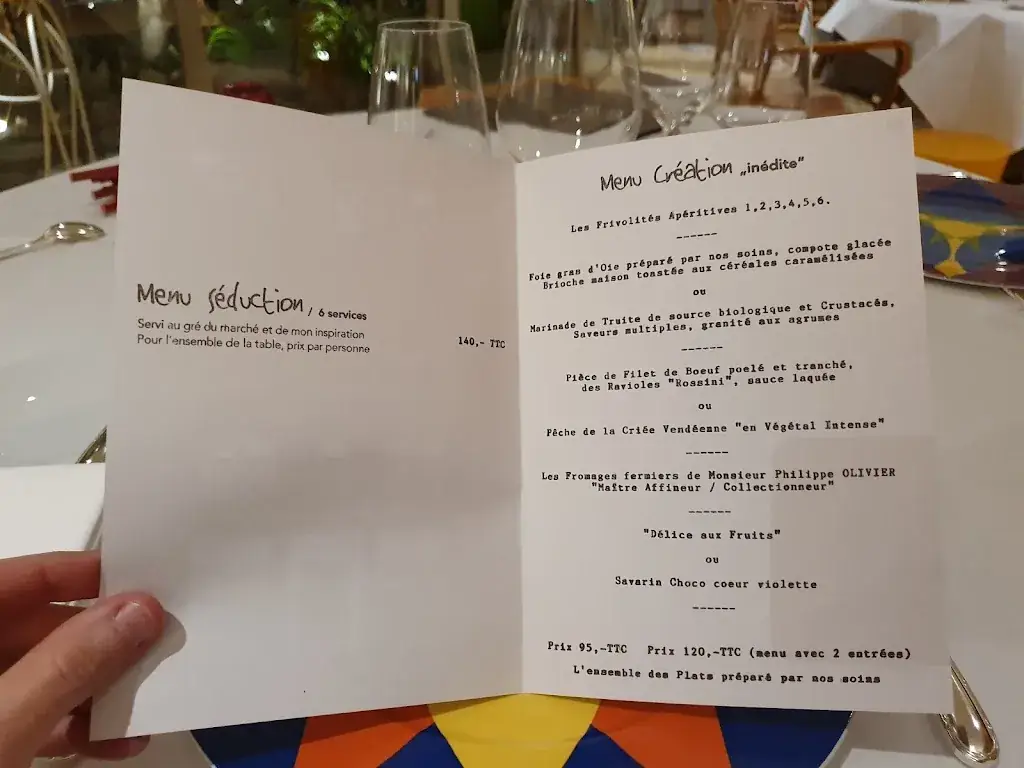 Menu séduction / 6 services
Servi au gré du marché et de mon inspiration
Pour l'ensemble de la table, prix par personne
140,- TTC
Menu Création „inédite"
Les Frivolités Apéritives 1,2,3,4,5,6.
------
Foie gras d'Oie préparé par nos soins, compote glacée
Brioche maison toastée aux céréales caramélisées
ou
Marinade de Truite de source biologique et Crustacés,
Saveurs multiples, granité aux agrumes
------
Pièce de Filet de Boeuf poelé et tranché,
des Ravioles "Rossini", sauce laquée
ou
Pêche de la Criée Vendéenne "en Végétal Intense"
------
Les Fromages fermiers de Monsieur Philippe OLIVIER
"Maître Affineur / Collectionneur"
------
"Délice aux Fruits"
ou
Savarin Choco coeur violette
------
Prix 95,-TTC Prix 120,-TTC (menu avec 2 entrées)
L'ensemble des Plats préparé par nos soins